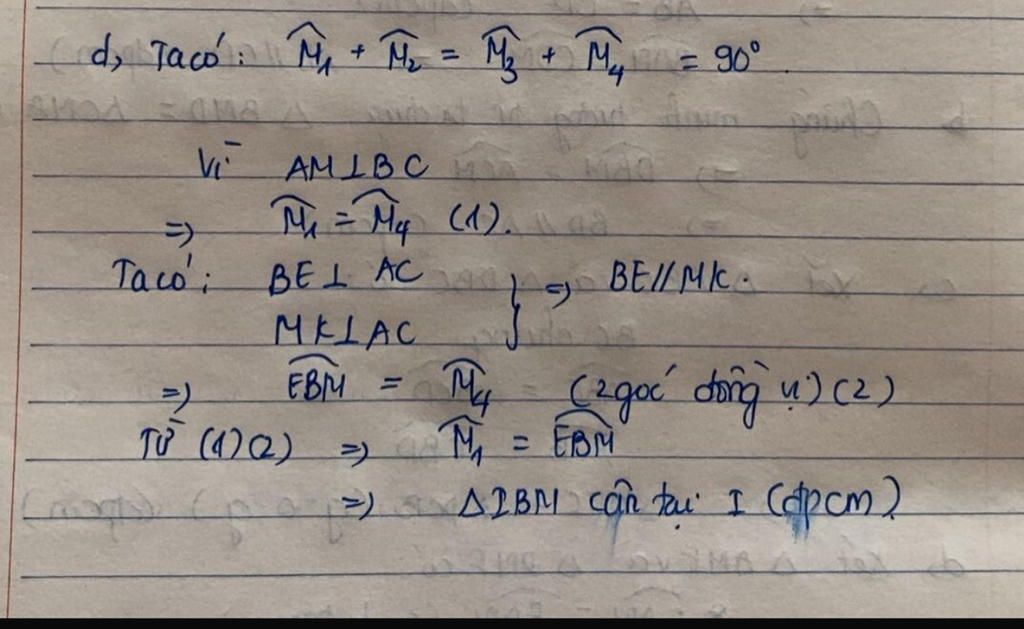 d, Ta có: M̂₁ + M̂₂ = M̂₃ + M̂₄ = 90°.
Vì AM⊥BC
=> M̂₁ = M̂₄ (1).
Ta có: BE⊥ AC } => BE//MK.
MK⊥AC
=> EBM̂ = M̂₄ (2 góc đồng vị) (2)
Từ (1)(2) => M̂₁ = EBM̂
=> ΔIBM cân tại I (đpcm)